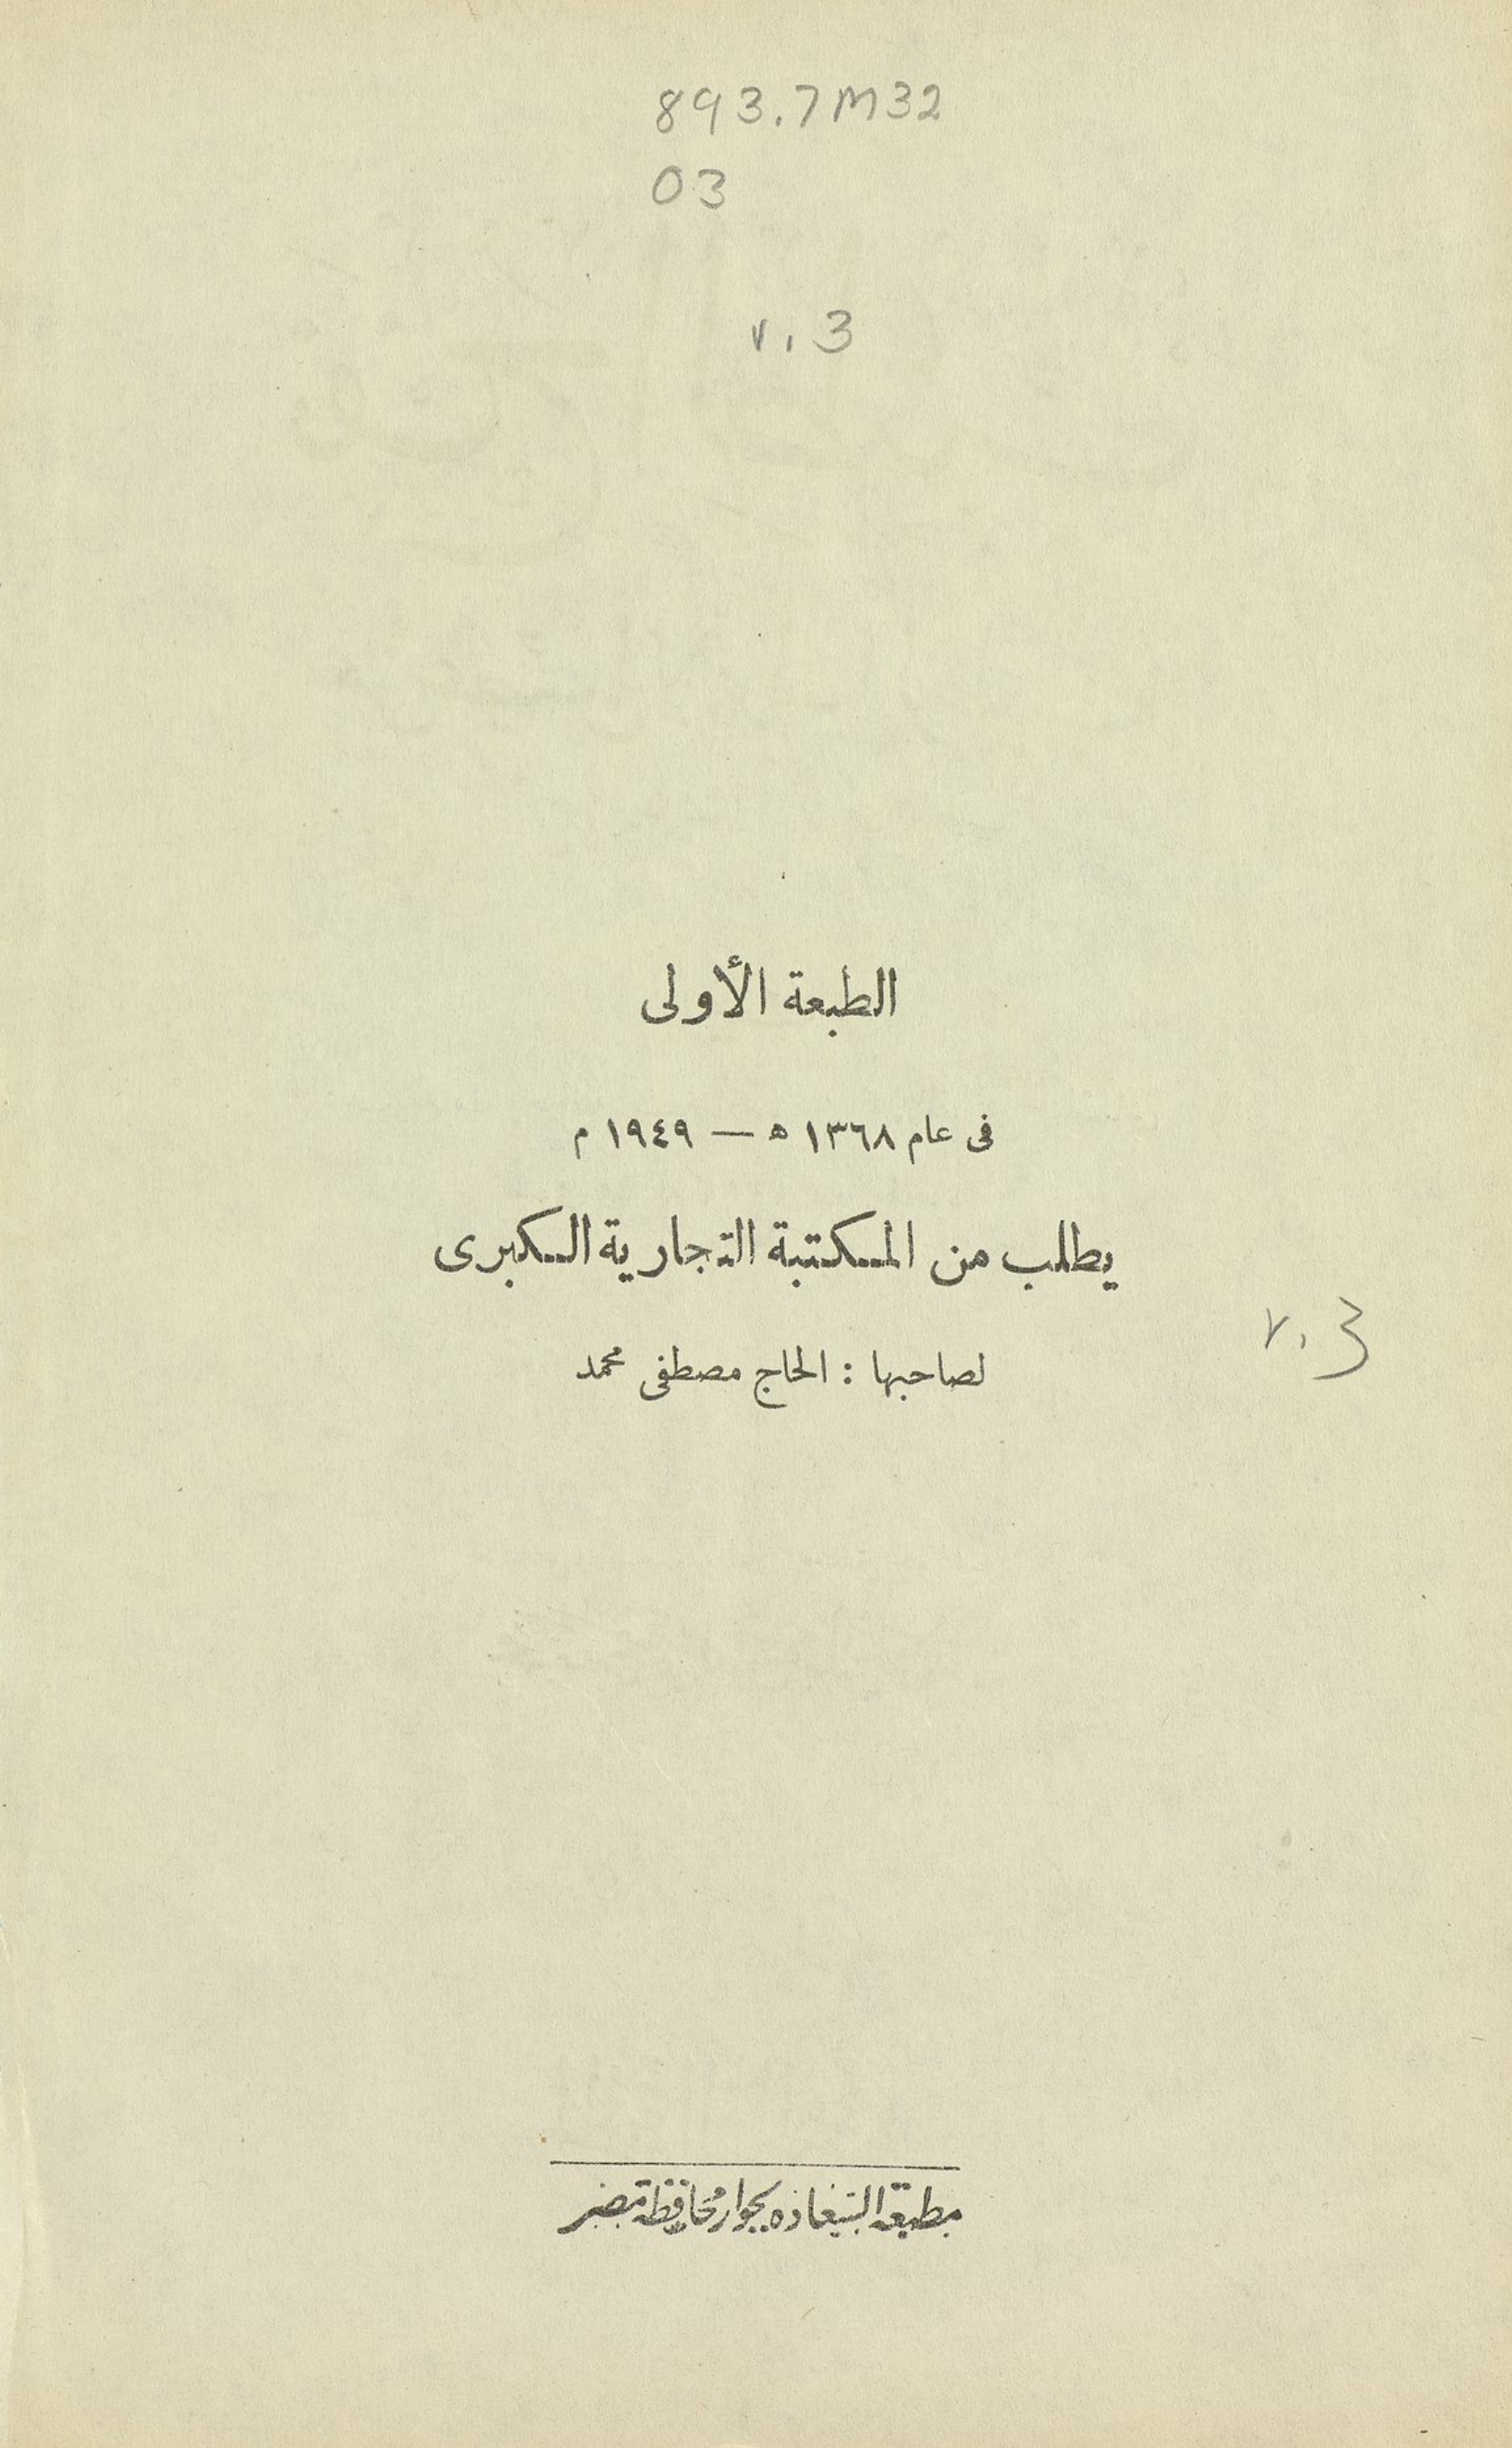 893.7M32
03
v.3
الطبعة الأولى
فى عام ١٣٦٨ ه — ١٩٤٩ م
يطلب من المكتبة التجارية الكبرى
لصاحبها : الحاج مصطفى محمد
v.3
مطبعة السعادة بجوار محافظة مصر